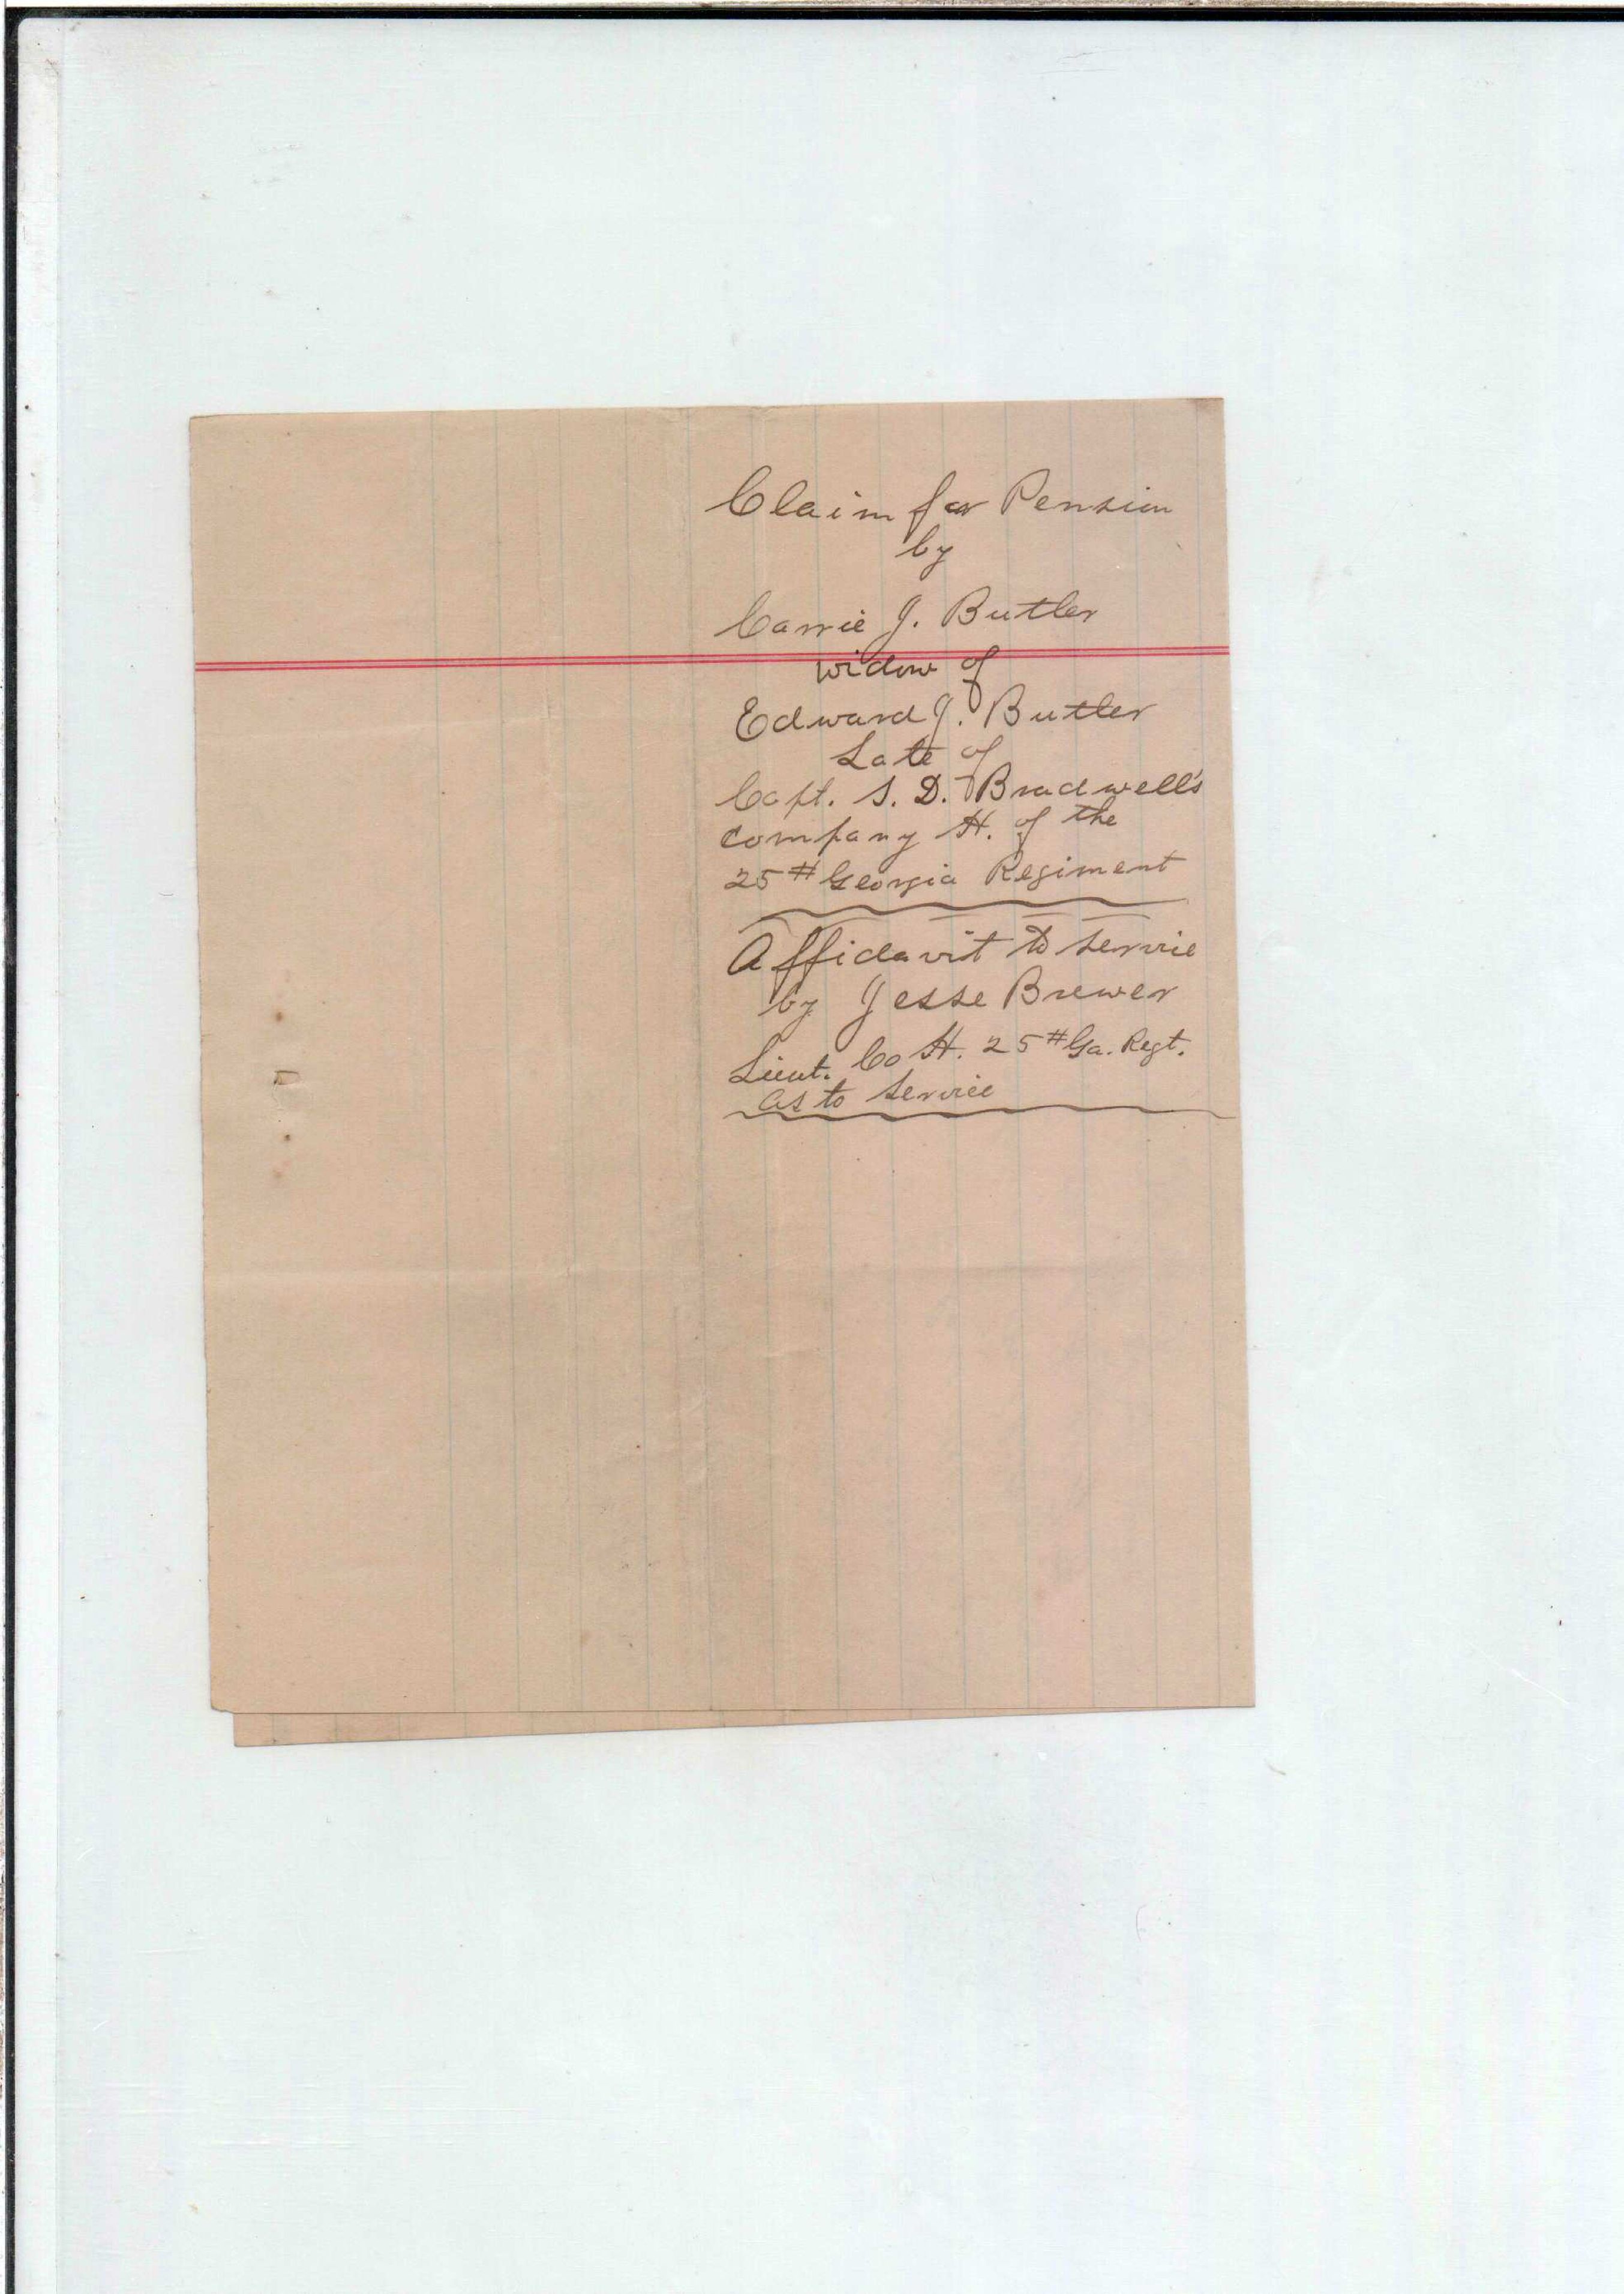 Claim for Pension
by
Carrie J. Butler
widow of
Edward J. Butler
Late of
Capt. S. D. Bradwell's
Company H. of the
25# Georgia Regiment
Affidavit to service
by Jesse Brewer
Lieut. Co H. 25# Ga. Regt.
as to service